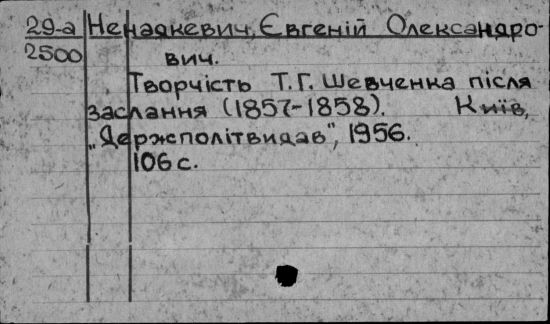 29-а Ненадкевич, Євгеній Олександро-
2500 вич.
Творчість Т.Г. Шевченка після
заслання (1857-1858). Київ,
„Держполітвидав", 1956.
106 с.